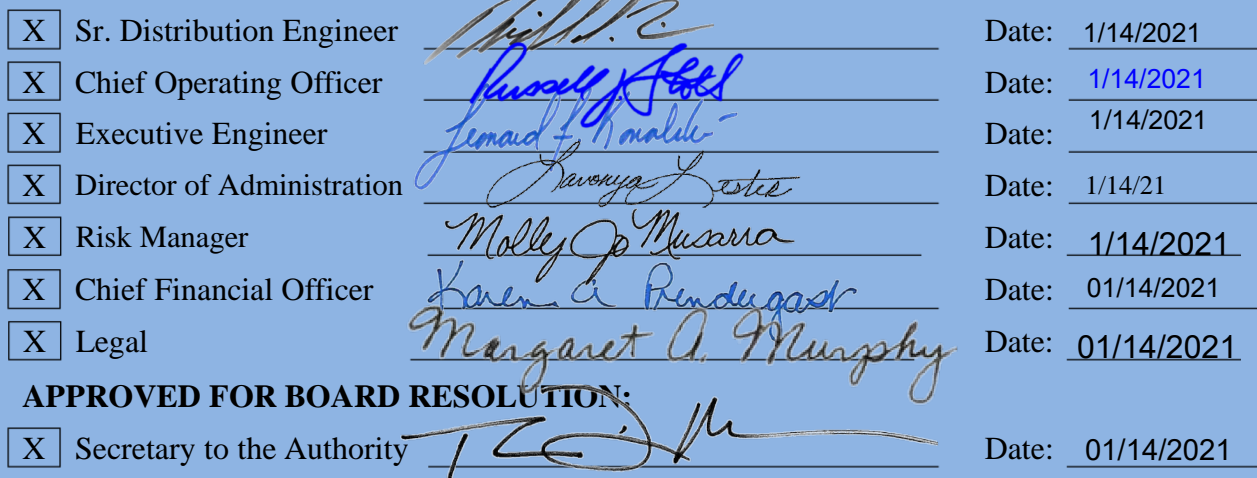 X Sr. Distribution Engineer Date: 1/14/2021
X Chief Operating Officer Russell J Stoll Date: 1/14/2021
X Executive Engineer Leonard F Kowalski Date: 1/14/2021
X Director of Administration Lavonya Lester Date: 1/14/21
X Risk Manager Molly Jo Musarra Date: 1/14/2021
X Chief Financial Officer Karen A Prendergast Date: 01/14/2021
X Legal Margaret A. Murphy Date: 01/14/2021
APPROVED FOR BOARD RESOLUTION:
X Secretary to the Authority Date: 01/14/2021